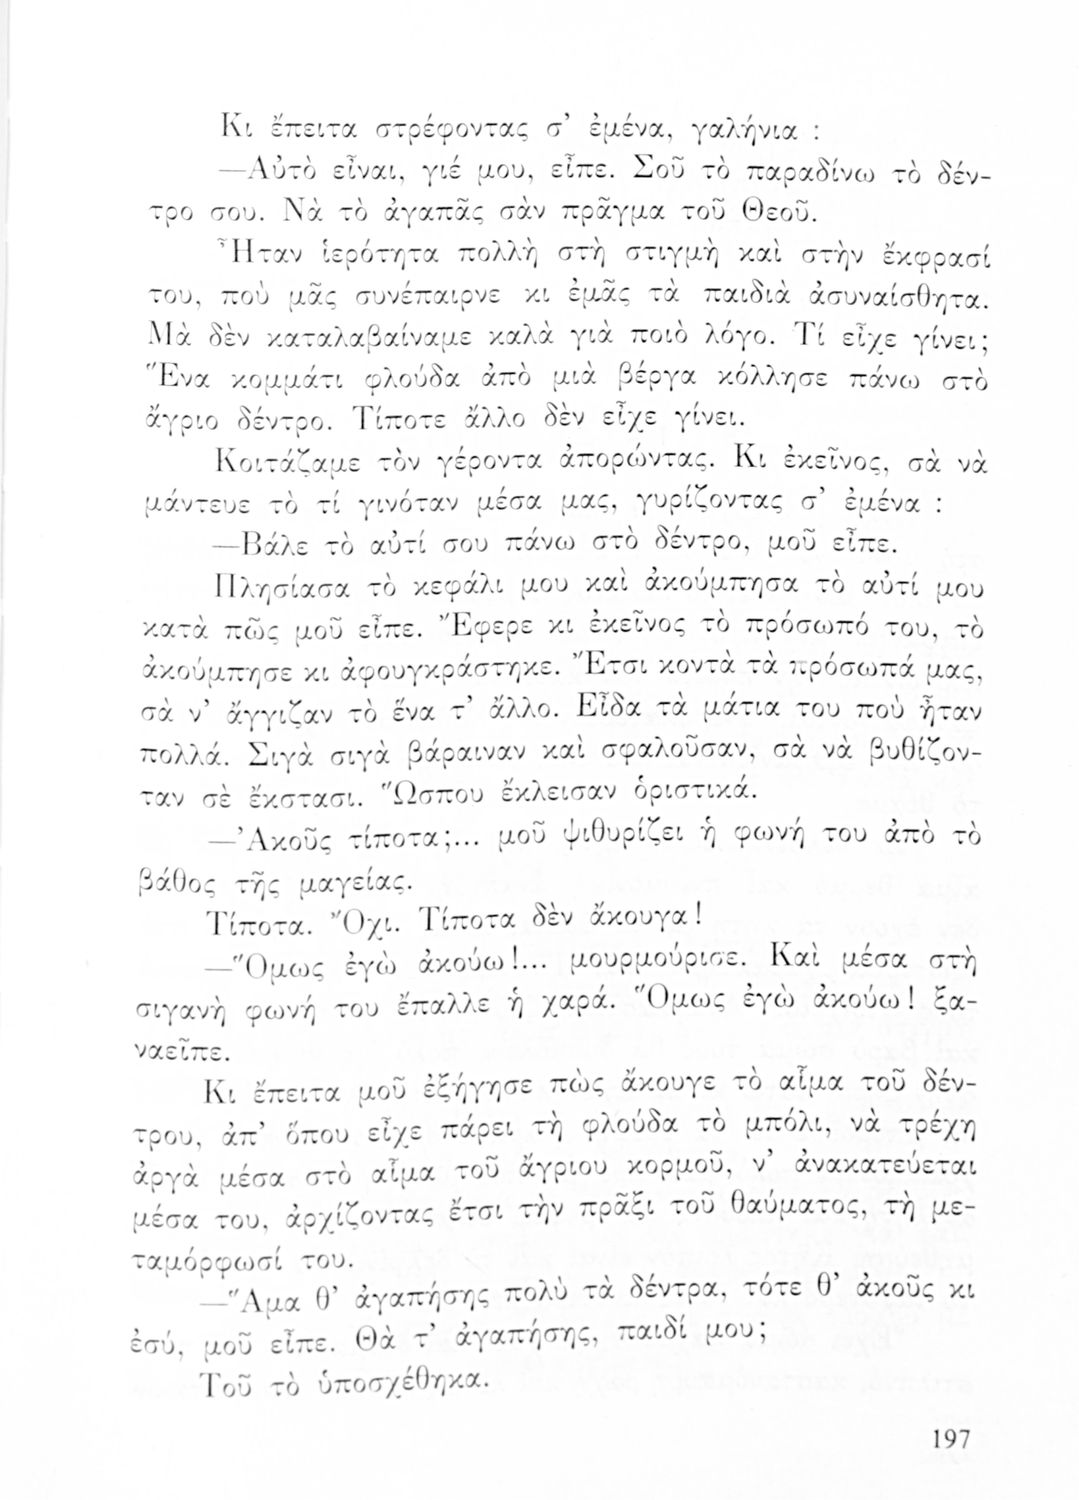 Κι ἔπειτα στρέφοντας σ’ ἐμένα, γαλήνια :
—Αὐτὸ εἶναι, γιέ μου, εἶπε. Σοῦ τὸ παραδίνω τὸ δέν-
τρο σου. Νὰ τὸ ἀγαπᾶς σὰν πρᾶγμα τοῦ Θεοῦ.
Ἦταν ἱερότητα πολλὴ στὴ στιγμὴ καὶ στὴν ἔκφρασί
του, ποὺ μᾶς συνέπαιρνε κι ἐμᾶς τὰ παιδιὰ ἀσυναίσθητα.
Μὰ δὲν καταλαβαίναμε καλὰ γιὰ ποιὸ λόγο. Τί εἶχε γίνει;
Ἕνα κομμάτι φλούδα ἀπὸ μιὰ βέργα κόλλησε πάνω στὸ
ἄγριο δέντρο. Τίποτε ἄλλο δὲν εἶχε γίνει.
Κοιτάζαμε τὸν γέροντα ἀπορώντας. Κι ἐκεῖνος, σὰ νὰ
μάντευε τὸ τί γινόταν μέσα μας, γυρίζοντας σ’ ἐμένα :
—Βάλε τὸ αὐτί σου πάνω στὸ δέντρο, μοῦ εἶπε.
Πλησίασα τὸ κεφάλι μου καὶ ἀκούμπησα τὸ αὐτί μου
κατὰ πῶς μοῦ εἶπε. Ἔφερε κι ἐκεῖνος τὸ πρόσωπό του, τὸ
ἀκούμπησε κι ἀφουγκράστηκε. Ἔτσι κοντὰ τὰ πρόσωπά μας,
σὰ ν’ ἄγγιζαν τὸ ἕνα τ’ ἄλλο. Εἶδα τὰ μάτια του ποὺ ἦταν
πολλά. Σιγὰ σιγὰ βάραιναν καὶ σφαλοῦσαν, σὰ νὰ βυθίζον-
ταν σὲ ἔκστασι. Ὥσπου ἔκλεισαν ὁριστικά.
—Ἀκοῦς τίποτα;... μοῦ ψιθυρίζει ἡ φωνή του ἀπὸ τὸ
βάθος τῆς μαγείας.
Τίποτα. Ὄχι. Τίποτα δὲν ἄκουγα!
—Ὅμως ἐγὼ ἀκούω!... μουρμούρισε. Καὶ μέσα στὴ
σιγανὴ φωνή του ἔπαλλε ἡ χαρά. Ὅμως ἐγὼ ἀκούω! ξα-
ναεῖπε.
Κι ἔπειτα μοῦ ἐξήγησε πὼς ἄκουγε τὸ αἷμα τοῦ δέν-
τρου, ἀπ’ ὅπου εἶχε πάρει τὴ φλούδα τὸ μπόλι, νὰ τρέχη
ἀργὰ μέσα στὸ αἷμα τοῦ ἄγριου κορμοῦ, ν’ ἀνακατεύεται
μέσα του, ἀρχίζοντας ἔτσι τὴν πρᾶξι τοῦ θαύματος, τὴ με-
ταμόρφωσί του.
—Ἅμα θ’ ἀγαπήσης πολὺ τὰ δέντρα, τότε θ’ ἀκοῦς κι
ἐσύ, μοῦ εἶπε. Θὰ τ’ ἀγαπήσης, παιδί μου;
Τοῦ τὸ ὑποσχέθηκα.
197